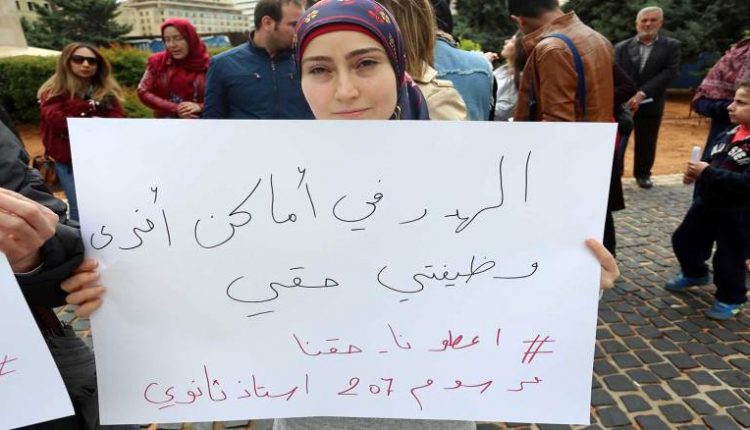 الهدر في أماكن أخرى
وظيفتي حقي
#اعطونا_حقنا
مرسوم 207 استاذ ثانوي
#